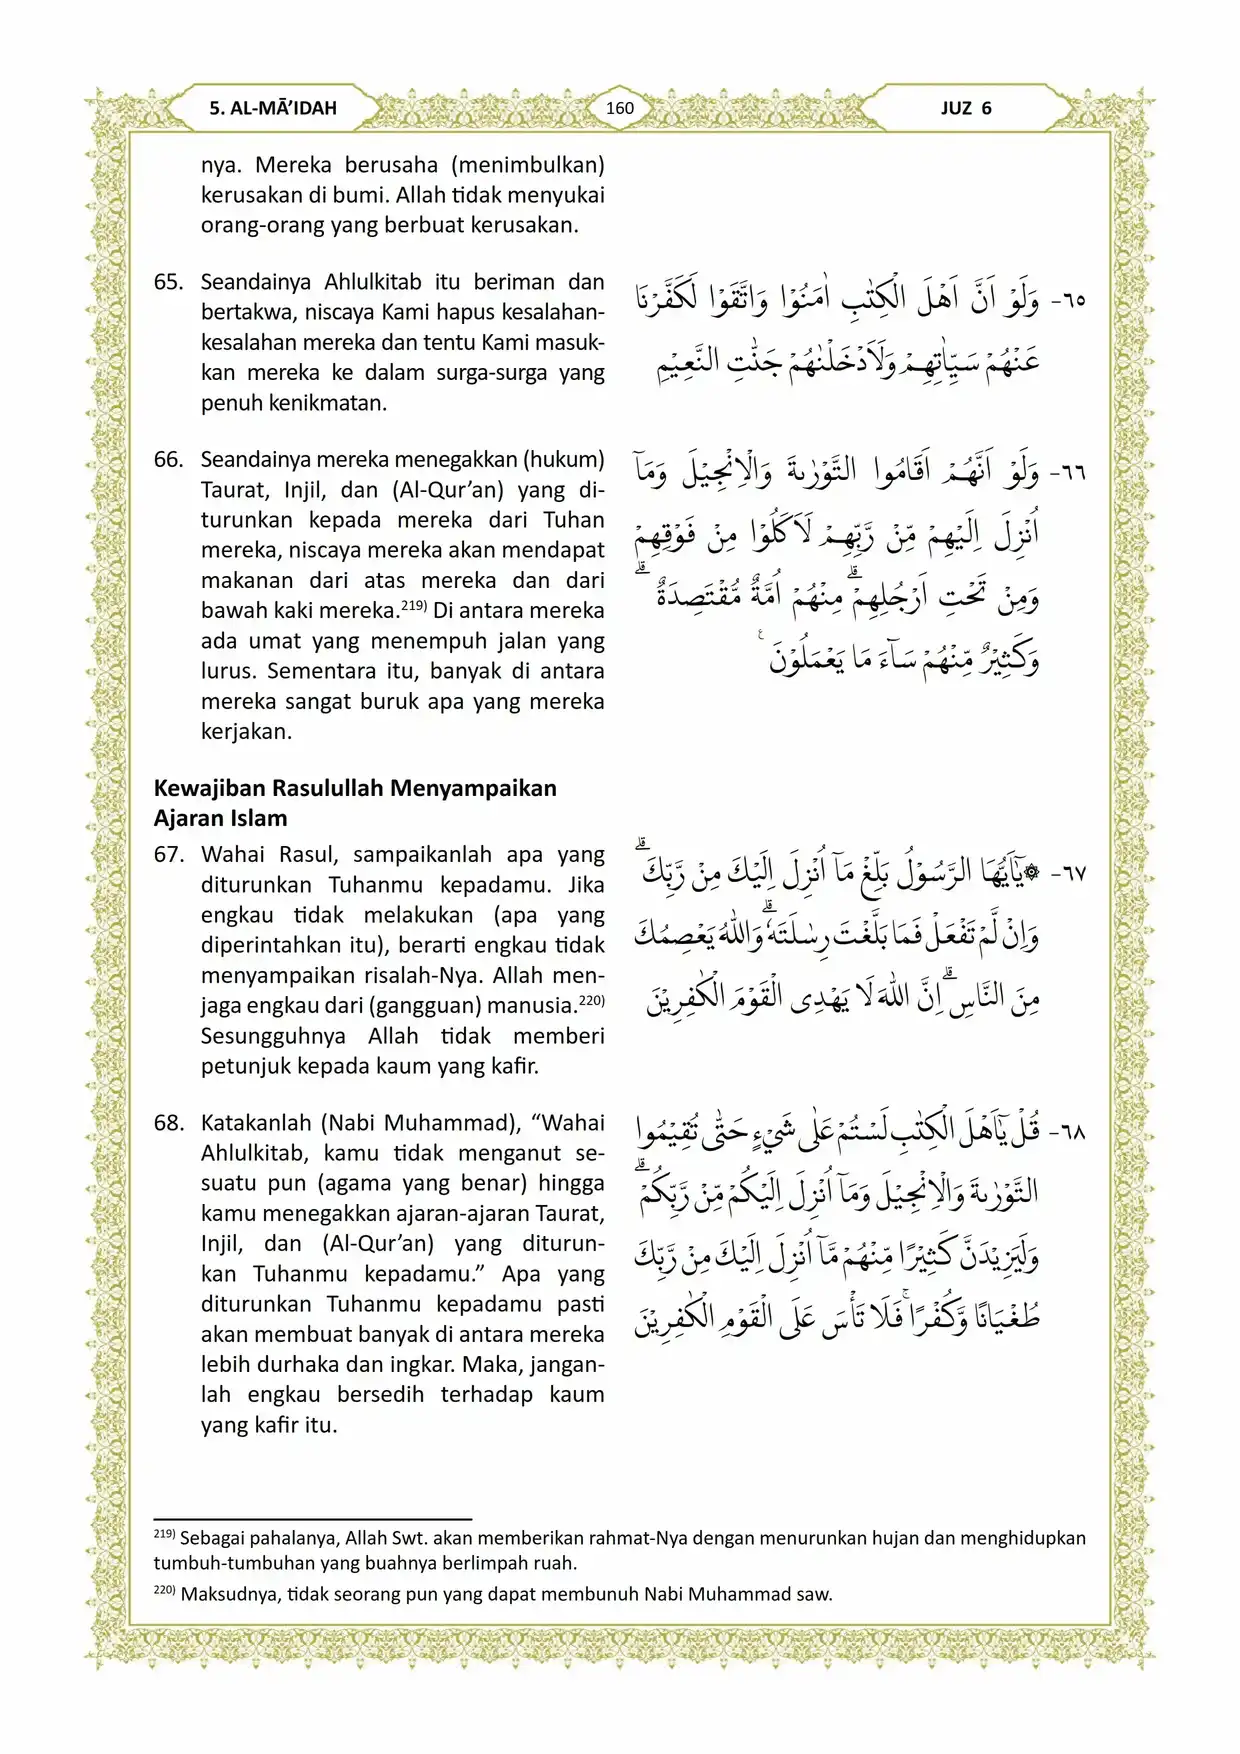 5. AL-MĀ’IDAH
160
JUZ 6
nya. Mereka berusaha (menimbulkan)
kerusakan di bumi. Allah tidak menyukai
orang-orang yang berbuat kerusakan.
65. Seandainya Ahlulkitab itu beriman dan
bertakwa, niscaya Kami hapus kesalahan-
kesalahan mereka dan tentu Kami masuk-
kan mereka ke dalam surga-surga yang
penuh kenikmatan.
٦٥- وَلَوْ اَنَّ اَهْلَ الْكِتٰبِ اٰمَنُوْا وَاتَّقَوْا لَكَفَّرْنَا
عَنْهُمْ سَيِّاٰتِهِمْ وَلَاَدْخَلْنٰهُمْ جَنّٰتِ النَّعِيْمِ
66. Seandainya mereka menegakkan (hukum)
Taurat, Injil, dan (Al-Qur’an) yang di-
turunkan kepada mereka dari Tuhan
mereka, niscaya mereka akan mendapat
makanan dari atas mereka dan dari
bawah kaki mereka.²¹⁹⁾ Di antara mereka
ada umat yang menempuh jalan yang
lurus. Sementara itu, banyak di antara
mereka sangat buruk apa yang mereka
kerjakan.
٦٦- وَلَوْ اَنَّهُمْ اَقَامُوا التَّوْرٰىةَ وَالْاِنْجِيْلَ وَمَآ
اُنْزِلَ اِلَيْهِمْ مِّنْ رَّبِّهِمْ لَاَكَلُوْا مِنْ فَوْقِهِمْ
وَمِنْ تَحْتِ اَرْجُلِهِمْۗ مِنْهُمْ اُمَّةٌ مُّقْتَصِدَةٌ ۗ
وَكَثِيْرٌ مِّنْهُمْ سَاۤءَ مَا يَعْمَلُوْنَ ࣖ
Kewajiban Rasulullah Menyampaikan
Ajaran Islam
67. Wahai Rasul, sampaikanlah apa yang
diturunkan Tuhanmu kepadamu. Jika
engkau tidak melakukan (apa yang
diperintahkan itu), berarti engkau tidak
menyampaikan risalah-Nya. Allah men-
jaga engkau dari (gangguan) manusia.²²⁰⁾
Sesungguhnya Allah tidak memberi
petunjuk kepada kaum yang kafir.
٦٧- ۞ يٰٓاَيُّهَا الرَّسُوْلُ بَلِّغْ مَآ اُنْزِلَ اِلَيْكَ مِنْ رَّبِّكَ ۗ
وَاِنْ لَّمْ تَفْعَلْ فَمَا بَلَّغْتَ رِسٰلَتَهٗ ۗوَاللّٰهُ يَعْصِمُكَ
مِنَ النَّاسِۗ اِنَّ اللّٰهَ لَا يَهْدِى الْقَوْمَ الْكٰفِرِيْنَ
68. Katakanlah (Nabi Muhammad), “Wahai
Ahlulkitab, kamu tidak menganut se-
suatu pun (agama yang benar) hingga
kamu menegakkan ajaran-ajaran Taurat,
Injil, dan (Al-Qur’an) yang diturun-
kan Tuhanmu kepadamu.” Apa yang
diturunkan Tuhanmu kepadamu pasti
akan membuat banyak di antara mereka
lebih durhaka dan ingkar. Maka, jangan-
lah engkau bersedih terhadap kaum
yang kafir itu.
٦٨- قُلْ يٰٓاَهْلَ الْكِتٰبِ لَسْتُمْ عَلٰى شَيْءٍ حَتّٰى تُقِيْمُوا
التَّوْرٰىةَ وَالْاِنْجِيْلَ وَمَآ اُنْزِلَ اِلَيْكُمْ مِّنْ رَّبِّكُمْ ۗ
وَلَيَزِيْدَنَّ كَثِيْرًا مِّنْهُمْ مَّآ اُنْزِلَ اِلَيْكَ مِنْ رَّبِّكَ
طُغْيَانًا وَّكُفْرًاۚ فَلَا تَأْسَ عَلَى الْقَوْمِ الْكٰفِرِيْنَ
²¹⁹⁾ Sebagai pahalanya, Allah Swt. akan memberikan rahmat-Nya dengan menurunkan hujan dan menghidupkan
tumbuh-tumbuhan yang buahnya berlimpah ruah.
²²⁰⁾ Maksudnya, tidak seorang pun yang dapat membunuh Nabi Muhammad saw.